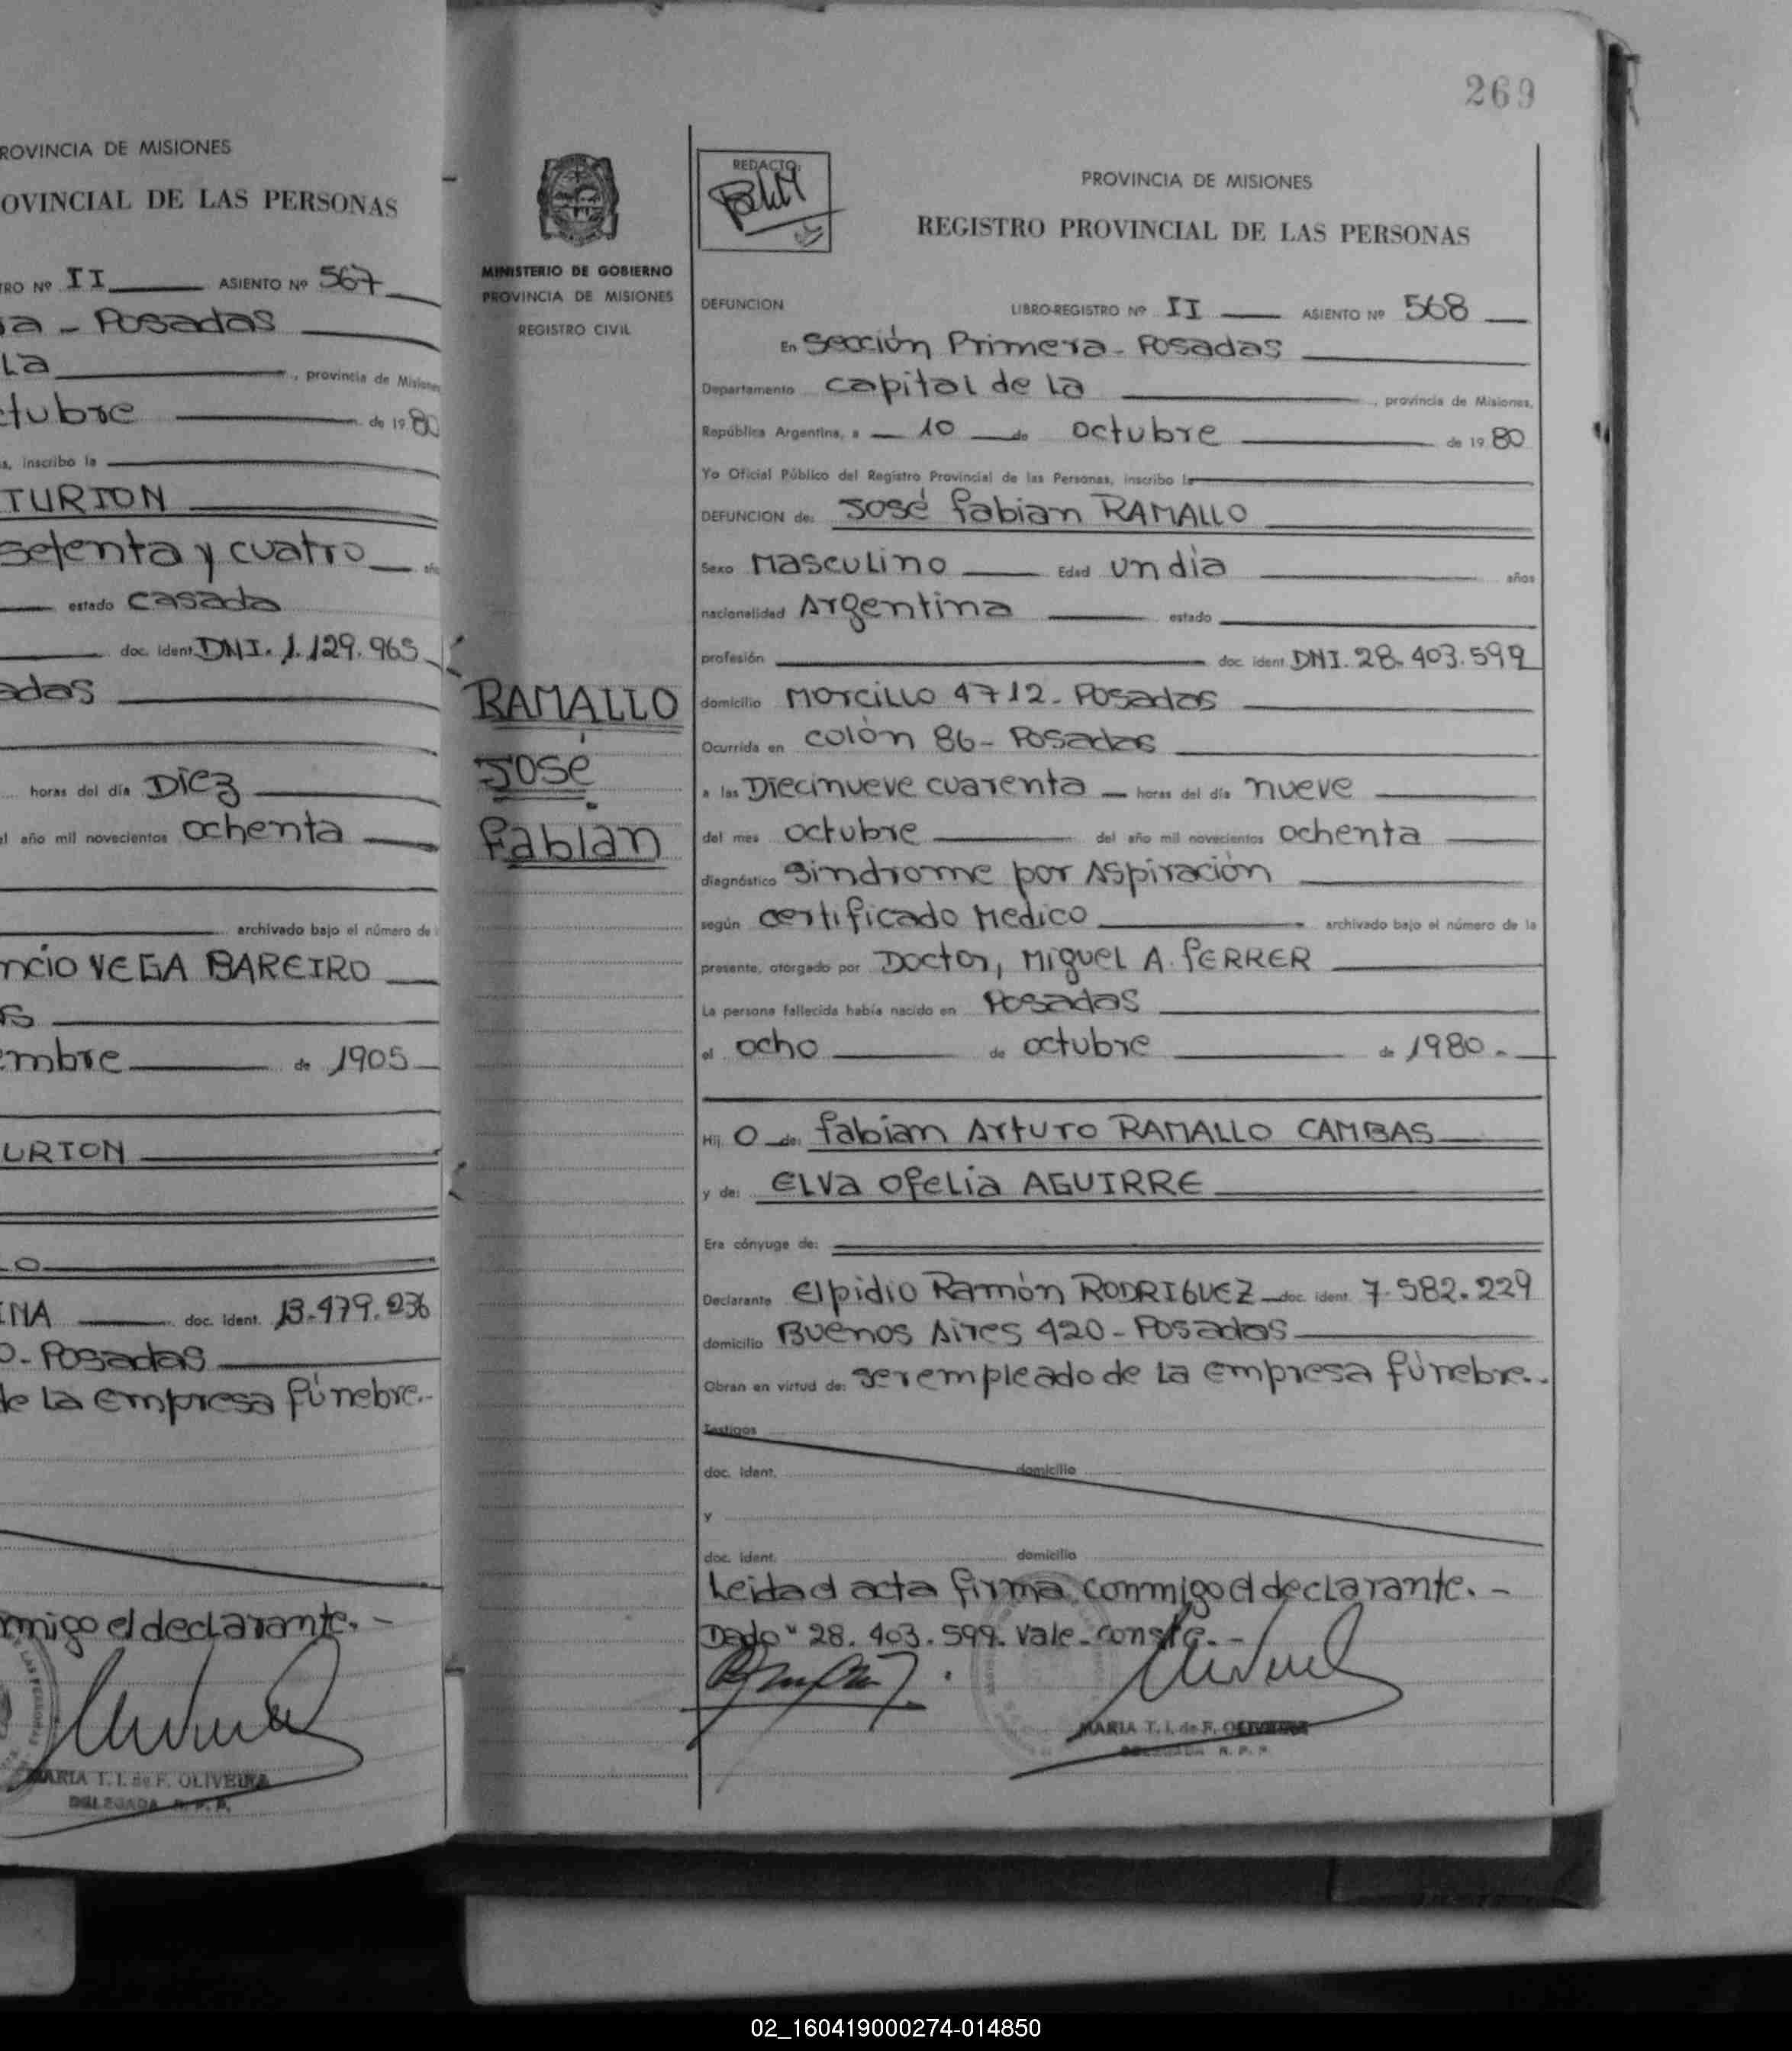 ROVINCIA DE MISIONES
OVINCIAL DE LAS PERSONAS
RO Nº II ASIENTO Nº 567
a - Posadas
La , provincia de Misiones
ctubre de 1980
s, inscribo la
TURION
setenta y cuatro
estado casada
doc. ident. DNI. 1.129.965
adas
horas del día Diez
l año mil novecientos ochenta
archivado bajo el número de
ncio VEGA BAREIRO
s
embre de 1905
URION
o
INA doc. ident. 13.479.236
o - Posadas
de La empresa fúnebre.-
nmigo el declarante. -
MARIA T. I. de F. OLIVEIRA
DELEGADA R. P. P.
MINISTERIO DE GOBIERNO
PROVINCIA DE MISIONES
REGISTRO CIVIL
RAMALLO
José
Fabián
269
REDACTO:
PROVINCIA DE MISIONES
REGISTRO PROVINCIAL DE LAS PERSONAS
DEFUNCION LIBRO-REGISTRO Nº II ASIENTO Nº 568
En Sección Primera - Posadas
Departamento capital de La , provincia de Misiones,
República Argentina, a 10 de octubre de 1980
Yo Oficial Público del Registro Provincial de las Personas, inscribo la
DEFUNCION de: José Fabian RAMALLO
Sexo Masculino Edad un día años
nacionalidad Argentina estado
profesión doc. ident. DNI. 28.403.599
domicilio Morcillo 4712 - Posadas
Ocurrida en colón 86 - Posadas
a las Diecinueve cuarenta horas del día nueve
del mes octubre del año mil novecientos ochenta
diagnóstico Sindrome por Aspiración
según certificado Medico archivado bajo el número de la
presente, otorgado por Doctor, Miguel A. FERRER
La persona fallecida había nacido en Posadas
el ocho de octubre de 1980.-
Hij o de: Fabian Arturo RAMALLO CAMBAS
y de: ELVa Ofelia AGUIRRE
Era cónyuge de:
Declarante Elpidio Ramón RODRIGUEZ doc. ident. 7.582.229
domicilio Buenos Aires 420 - Posadas
Obran en virtud de: ser empleado de La empresa fúnebre.-
Testigos
doc. ident. domicilio
y
doc. ident. domicilio
Leida el acta firma conmigo el declarante. -
Dado " 28.403.599. Vale - conste. -
MARIA T. I. de F. OLIVEIRA
DELEGADA R. P. P.
02_160419000274-014850